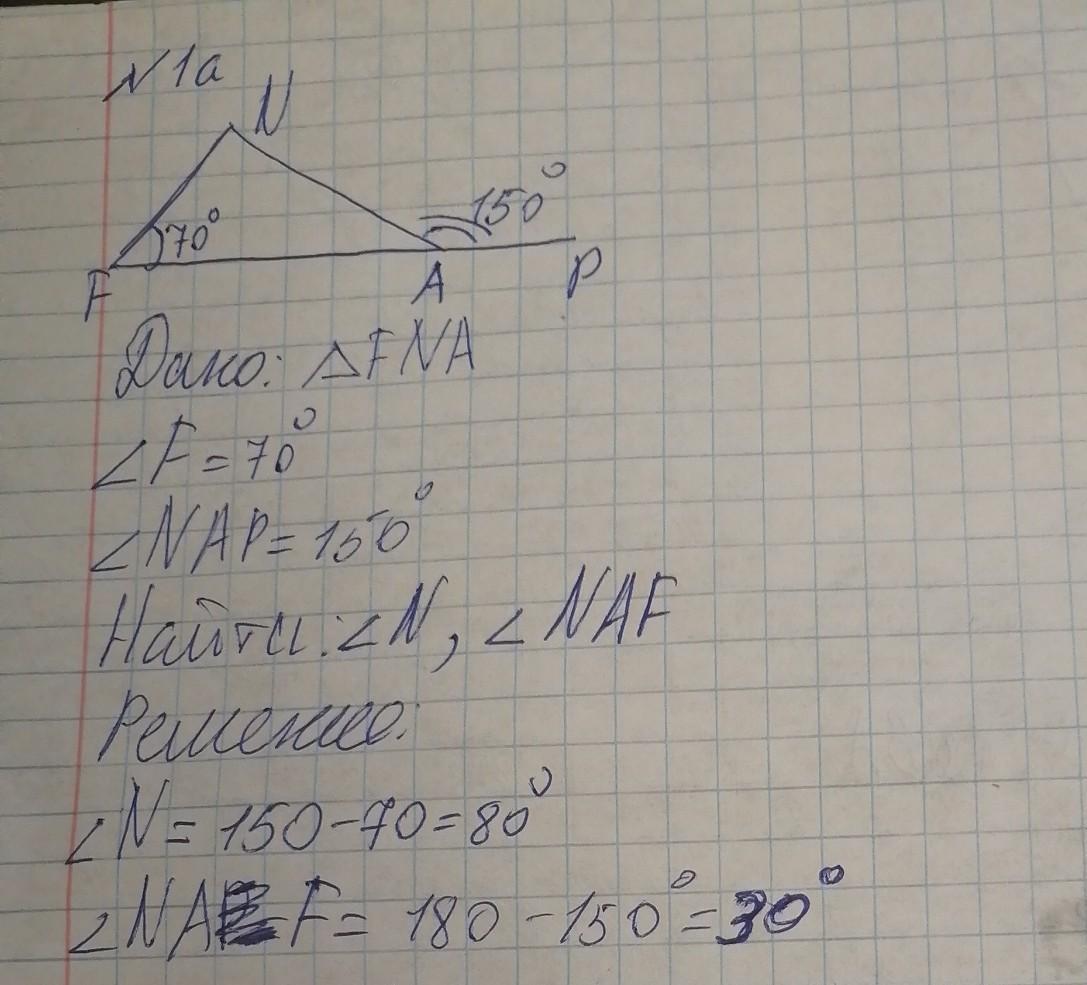 № 1а
N
70°
150°
F
A
P
Дано: △FNA
∠F = 70°
∠NAP = 150°
Найти: ∠N, ∠NAF
Решение:
∠N = 150 - 70 = 80°
∠NAF = 180 - 150° = 30°